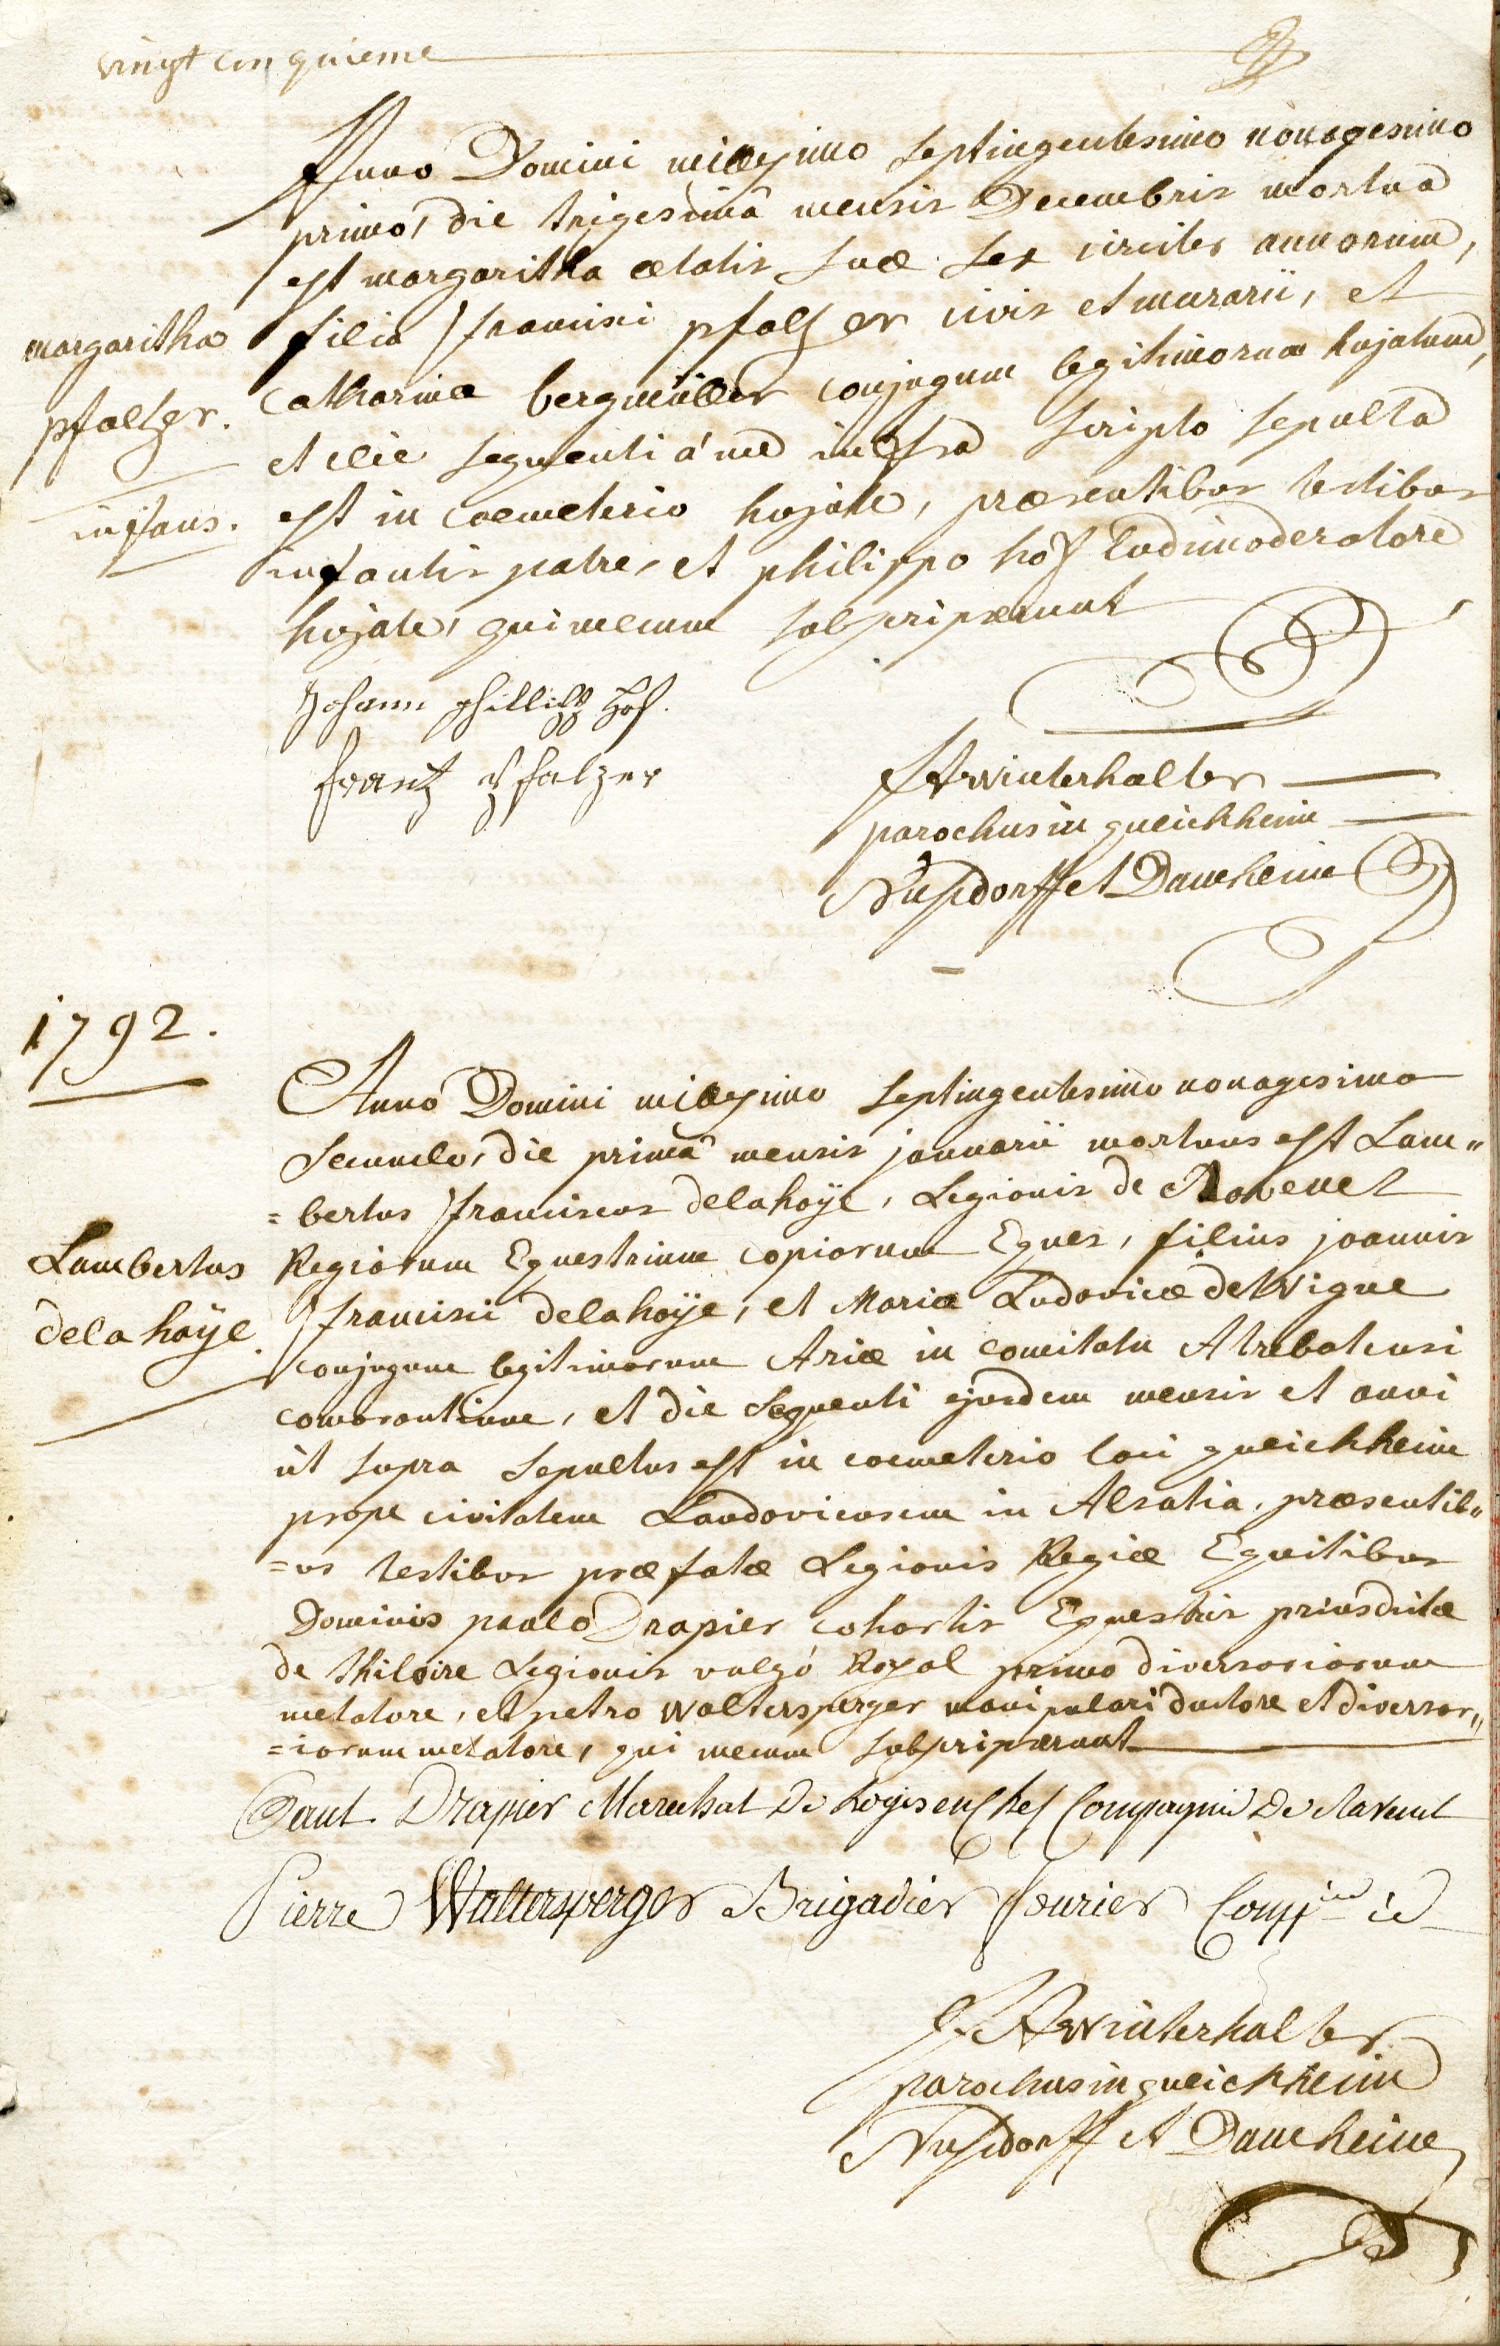 vingt cinquieme
Anno Domini millesimo septingentesimo nonagesimo
primo, die trigesimâ mensis Decembris mortua
est margaritha ætatis suæ sex circiter annorum,
margaritha
pfaltzer.
infans.
filia francisci pfaltzer civis et murarii, et
Catharinæ bergmüller conjugum legitimorum hujatum,
et die sequenti á me infra scripto sepulta
est in coemeterio hujate, præsentibus testibus
infantis patre, et philippo hof ludimoderatore
hujate, qui mecum subscripserunt
Johann Phillipp Hof.
frantz Pfalzer
JA winterhalter
parochus in queichheim
Nusdorff et Damheim
1792.
Anno Domini millesimo septingentesimo nonagesimo
Secundo, die primâ mensis januarii mortuus est Lam"
=bertus franciscus delahoÿe, Legionis de Ravenel
Lambertus
delahoÿe.
Regiorum Equestrium copiorum Eques, filius joannis
francisci delahoÿe, et Mariæ Ludovicæ deWigne
conjugum legitimorum Ariæ in comitatu Atrebatensi
comorantium, et die sequenti ejusdem mensis et anni
ut supra sepultus est in coemeterio loci queichheim
prope civitatem Landoviensem in Alsatia, præsentib"
=us testibus præfatæ Legionis Regiæ Equitibus
Dominis paulo Drapier cohortis Equestris priusdictæ
de Legionis vulgó Royal primo diversoriorum
metatore, et petro Waltersperger manipulari ductore et diversor"
=iorum metatore, qui mecum subscripserunt
Paul Drapier Marechal De Logis en Chef Compagnie De Ravenel
Pierre Waltersperger Brigadier fourier Comp.ie id
JA winterhalter
parochus in queichheim
Nusdorff et Damheim